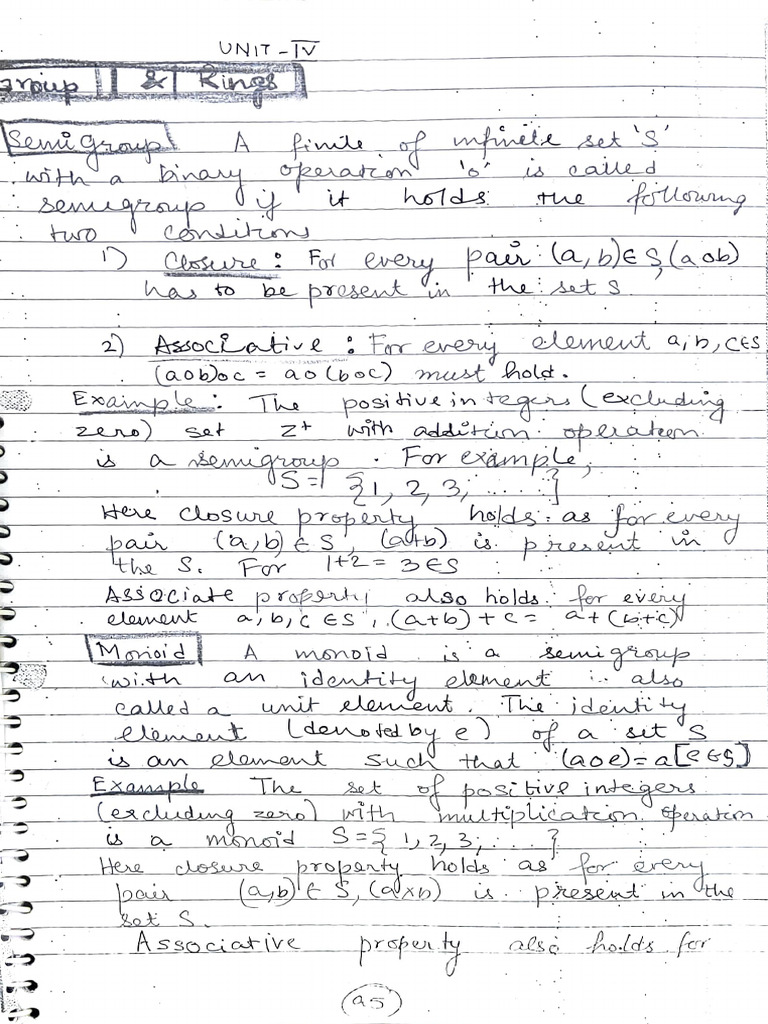 UNIT-IV
Group & Rings
Semigroup A finite of infinite set 'S'
with a binary operation 'o' is called
semigroup if it holds the following
two conditions
1) Closure: For every pair (a,b)∈S,(aob)
has to be present in the set S
2) Associative: For every element a,b,c∈S
(aob)oc = ao(boc) must hold.
Example: The positive integers (excluding
zero) set z+ with addition operation
is a semigroup. For example,
S = {1, 2, 3, ......}
Here closure property holds as for every
pair (a,b)∈S, (a+b) is present in
the S. For 1+2=3∈S
Associate property also holds for every
element a,b,c∈S, (a+b)+c = a+(b+c)
Monoid A monoid is a semigroup
with an identity element also
called a unit element. The identity
element (denoted by e) of a set S
is an element such that (aoe)=a [e∈S]
Example The set of positive integers
(excluding zero) with multiplication operation
is a monoid S={1,2,3,....}
Here closure property holds as for every
pair (a,b)∈S,(a×b) is present in the
set S.
Associative property also holds for
95